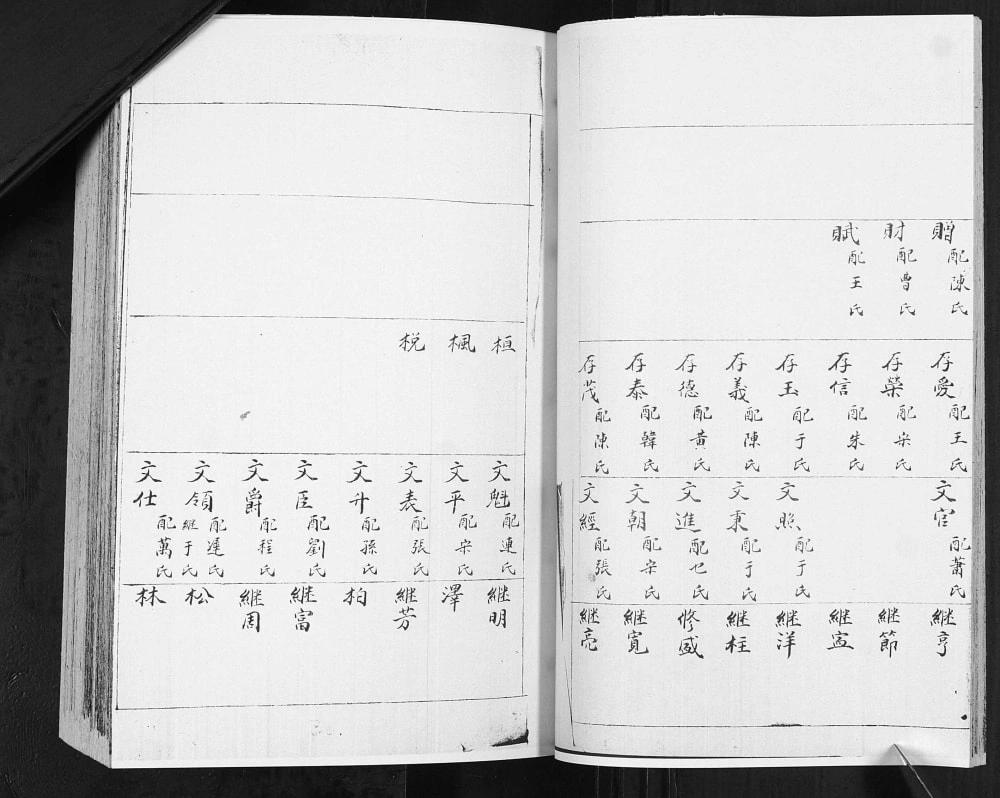 贈 配陳氏
財 配曹氏
賦 配王氏
存愛 配王氏
存榮 配宋氏
存信 配朱氏
存玉 配于氏
存義 配陳氏
存德 配黄氏
存泰 配韓氏
存茂 配陳氏
文官 配蕭氏
文照 配于氏
文秉 配于氏
文進 配七氏
文朝 配宋氏
文經 配張氏
継亨
継節
継
継洋
継柱
修盛
継寬
継亮
桓
楓
梲
文魁 配連氏
文平 配宋氏
文表 配張氏
文升 配孫氏
文臣 配劉氏
文爵 配程氏
文領 配遲氏 継于氏
文仕 配萬氏
継明
澤
継芳
柏
継富
継周
松
林